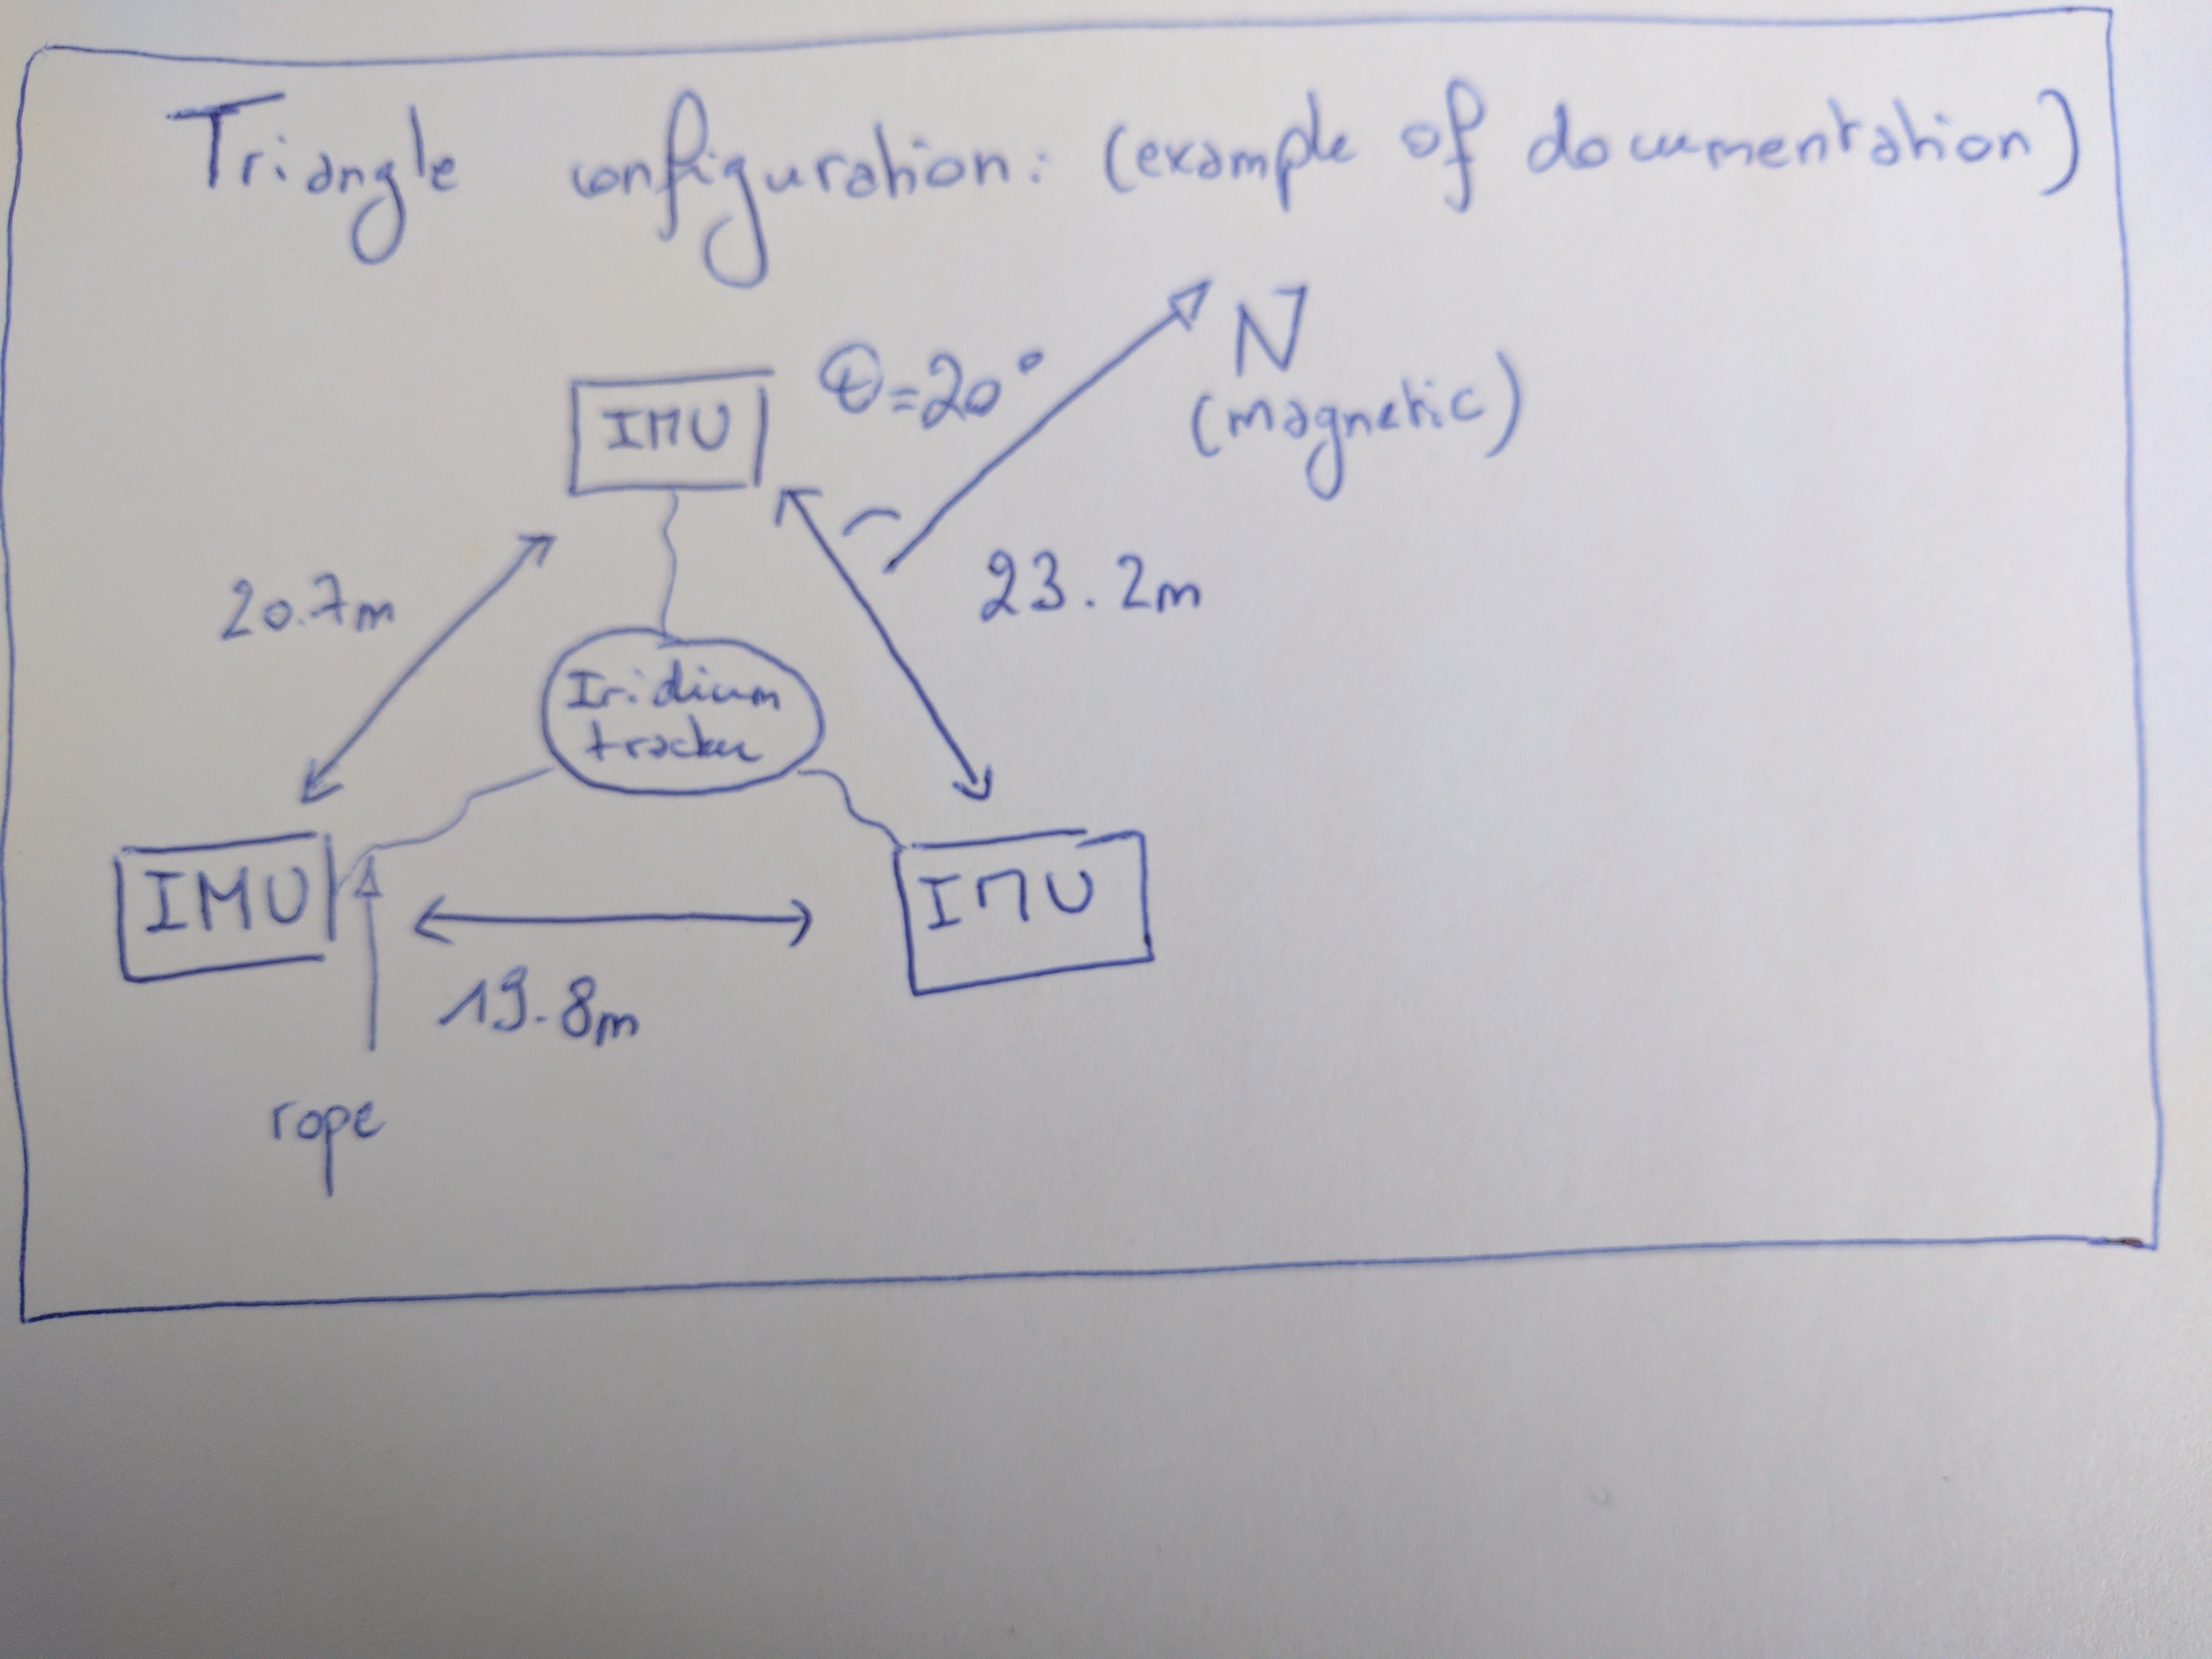 Triangle configuration: (example of documentation)
N
(magnetic)
θ=20°
IMU
20.7m
23.2m
Iridium
tracker
IMU
IMU
19.8m
rope